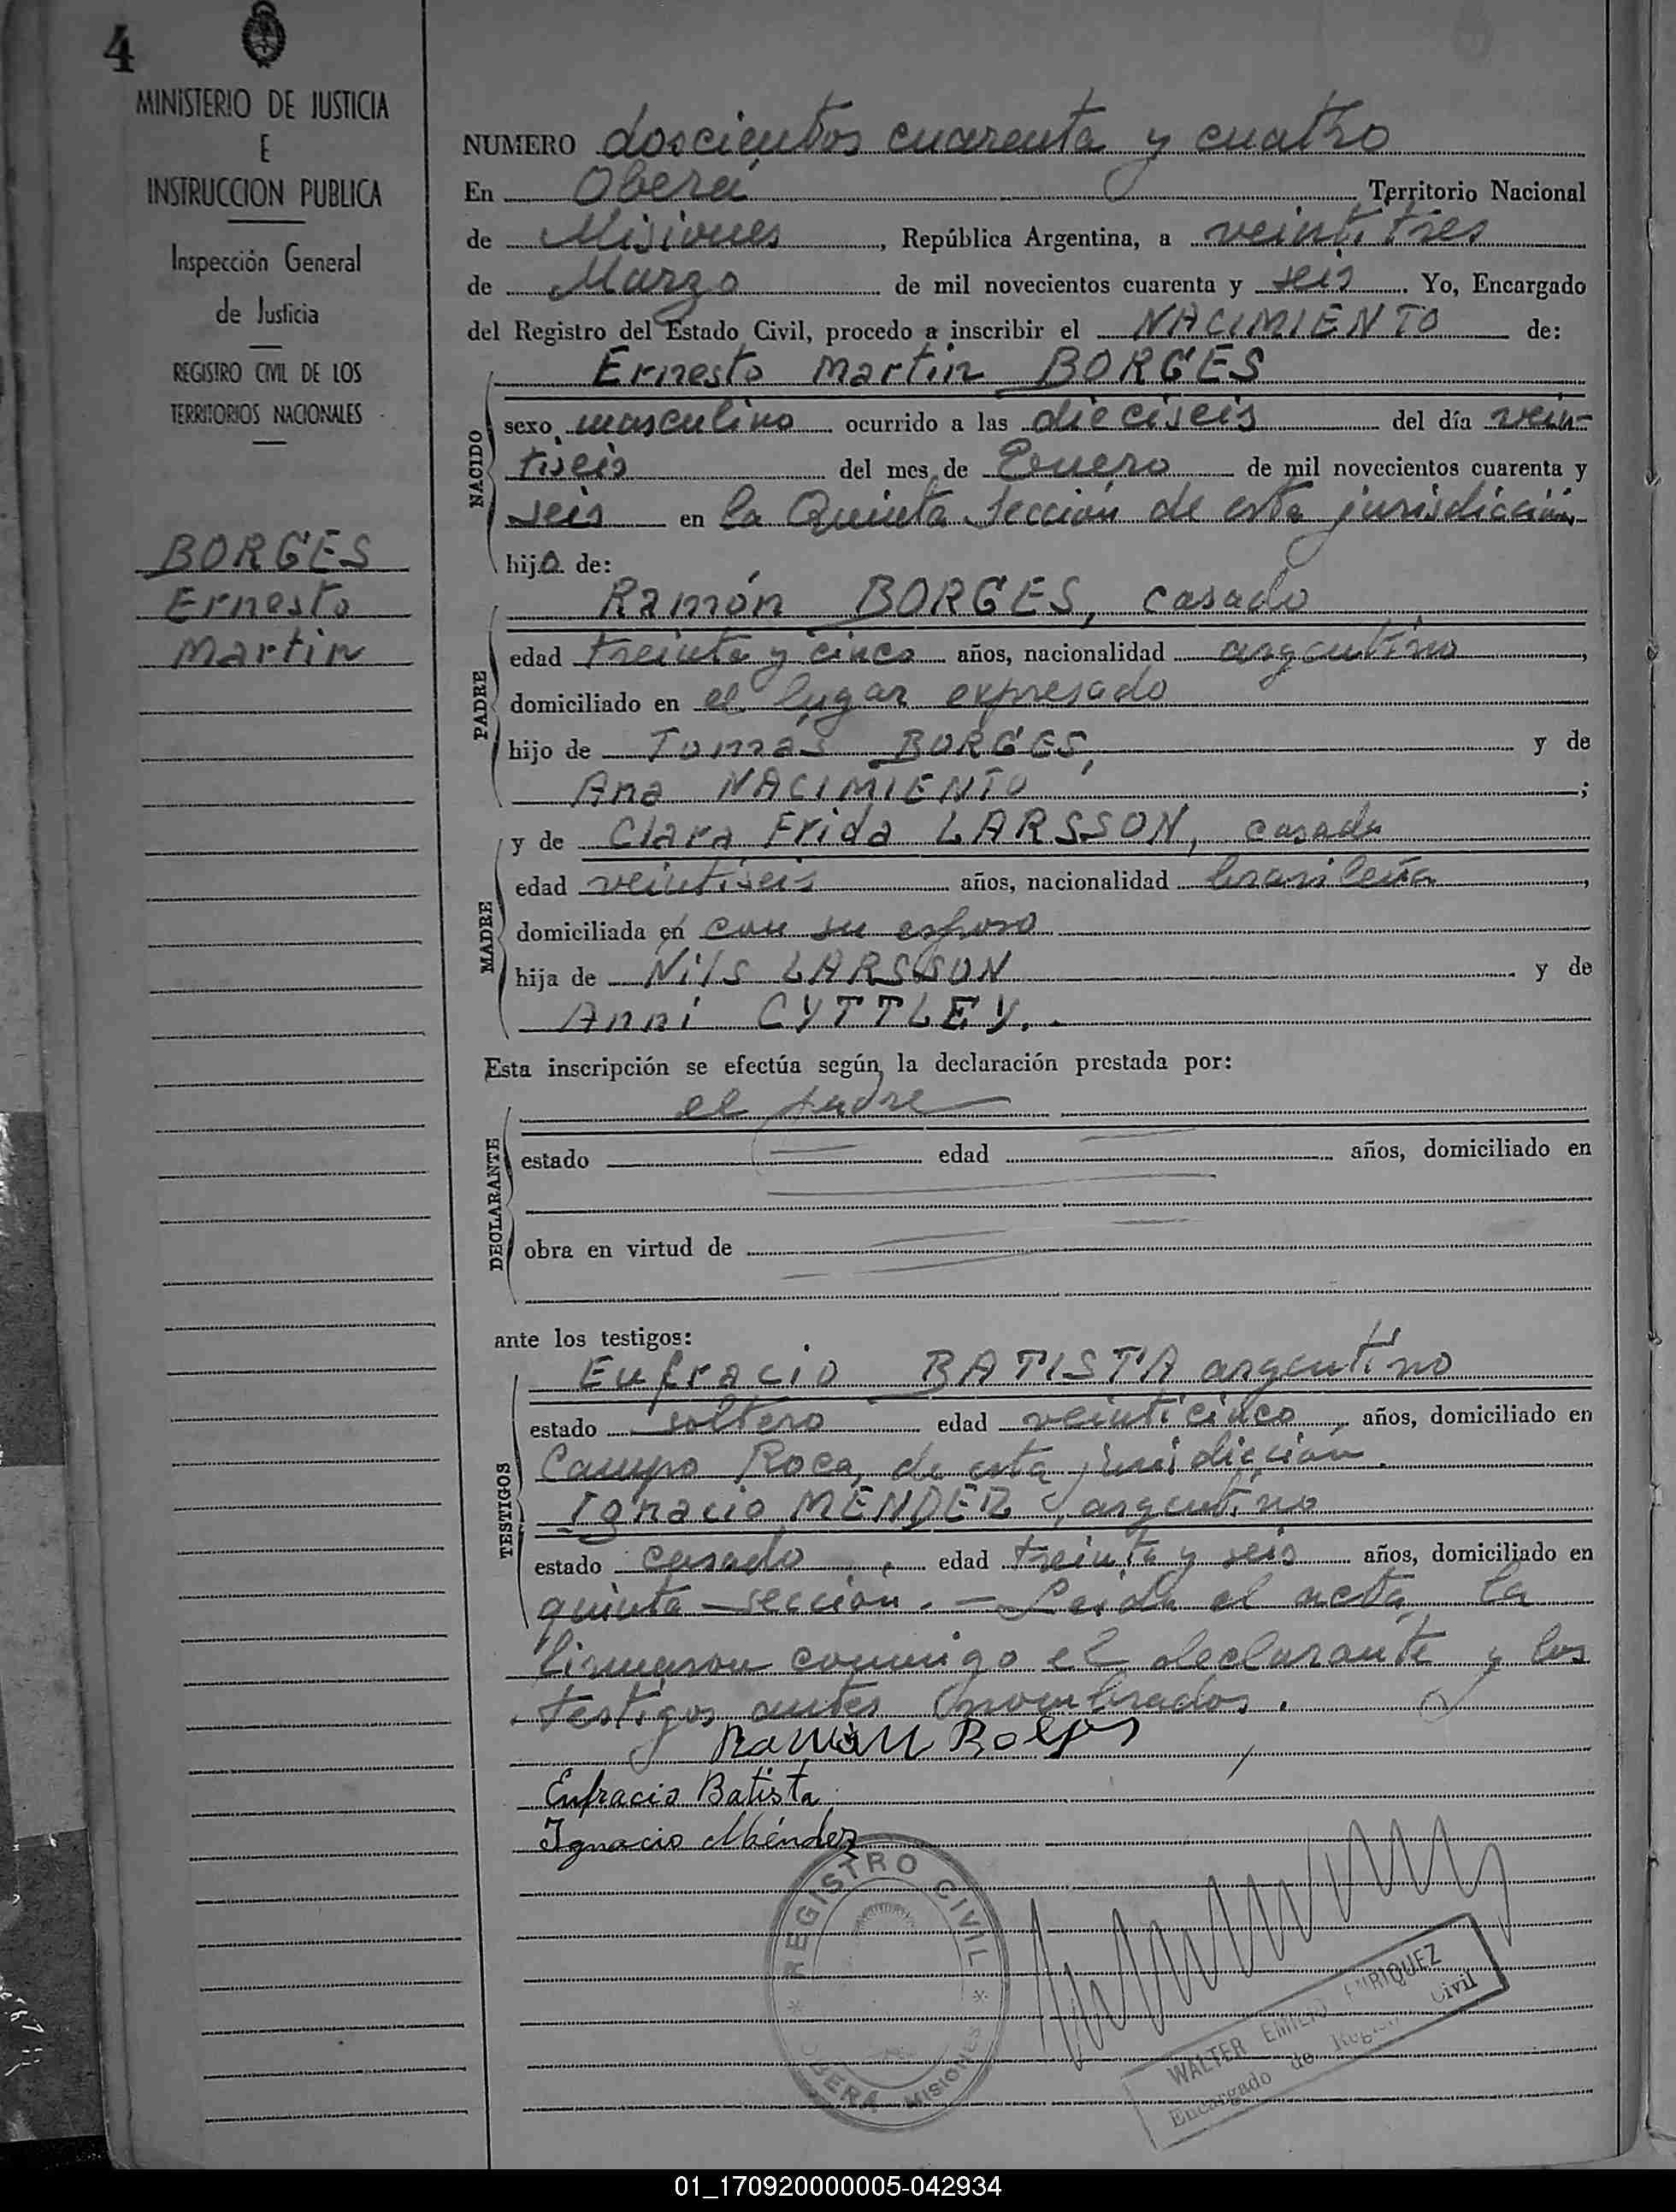 4
MINISTERIO DE JUSTICIA
E
INSTRUCCION PUBLICA
Inspección General
de Justicia
REGISTRO CIVIL DE LOS
TERRITORIOS NACIONALES
BORGES
Ernesto
Martin
NUMERO doscientos cuarenta y cuatro
En Oberá Territorio Nacional
de Misiones, República Argentina, a veintitres
de Marzo de mil novecientos cuarenta y seis. Yo, Encargado
del Registro del Estado Civil, procedo a inscribir el NACIMIENTO de:
NACIDO
Ernesto Martin BORGES
sexo masculino ocurrido a las dieciseis del día vein-
tiseis del mes de Enero de mil novecientos cuarenta y
seis en la Quinta Sección de esta jurisdicción,
hijo de:
PADRE
Ramón BORGES, casado
edad treinta y cinco años, nacionalidad argentino,
domiciliado en el lugar expresado
hijo de Tomás BORGES, y de
Ana NACIMIENTO;
MADRE
y de Clara Frida LARSSON, casada
edad veintiseis años, nacionalidad brasileña,
domiciliada en con su esposo
hija de Nils LARSSON y de
Anni CYTTLEY.
Esta inscripción se efectúa según la declaración prestada por:
DECLARANTE
el padre
estado edad años, domiciliado en
obra en virtud de
ante los testigos:
TESTIGOS
Eufracio BATISTA argentino
estado soltero edad veinticinco, años, domiciliado en
Campo Roca, de esta jurisdicción.
Ignacio MENDEZ, argentino
estado casado, edad treinta y seis años, domiciliado en
quinta sección. — Leida el acta, la
firmaron conmigo el declarante y los
testigos antes nombrados.
Ramón
Eufracio Batista
Ignacio Méndez
REGISTRO CIVIL
OBERA MISIONES
WALTER EMILIO ENRIQUEZ
Encargado de Registro Civil
01_170920000005-042934